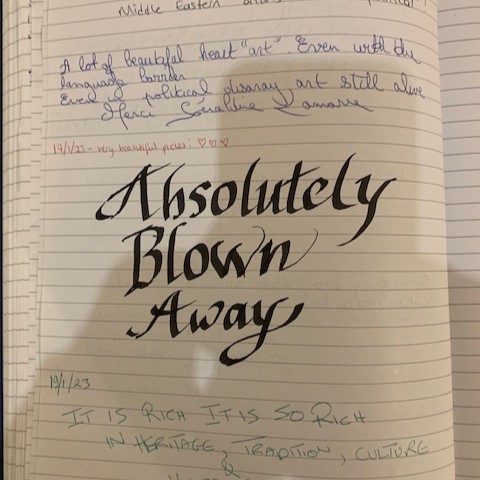 Middle Eastern
A lot of beautiful heart "art". Even with the
language barrier
Even in political disaray, art still alive
Merci Géraldine Lamarre
19/1/23 - very beautiful pieces! ♡♡♡
Absolutely
Blown
Away
19/1/23
IT IS RICH IT IS SO RICH
IN HERITAGE, TRADITION, CULTURE
&